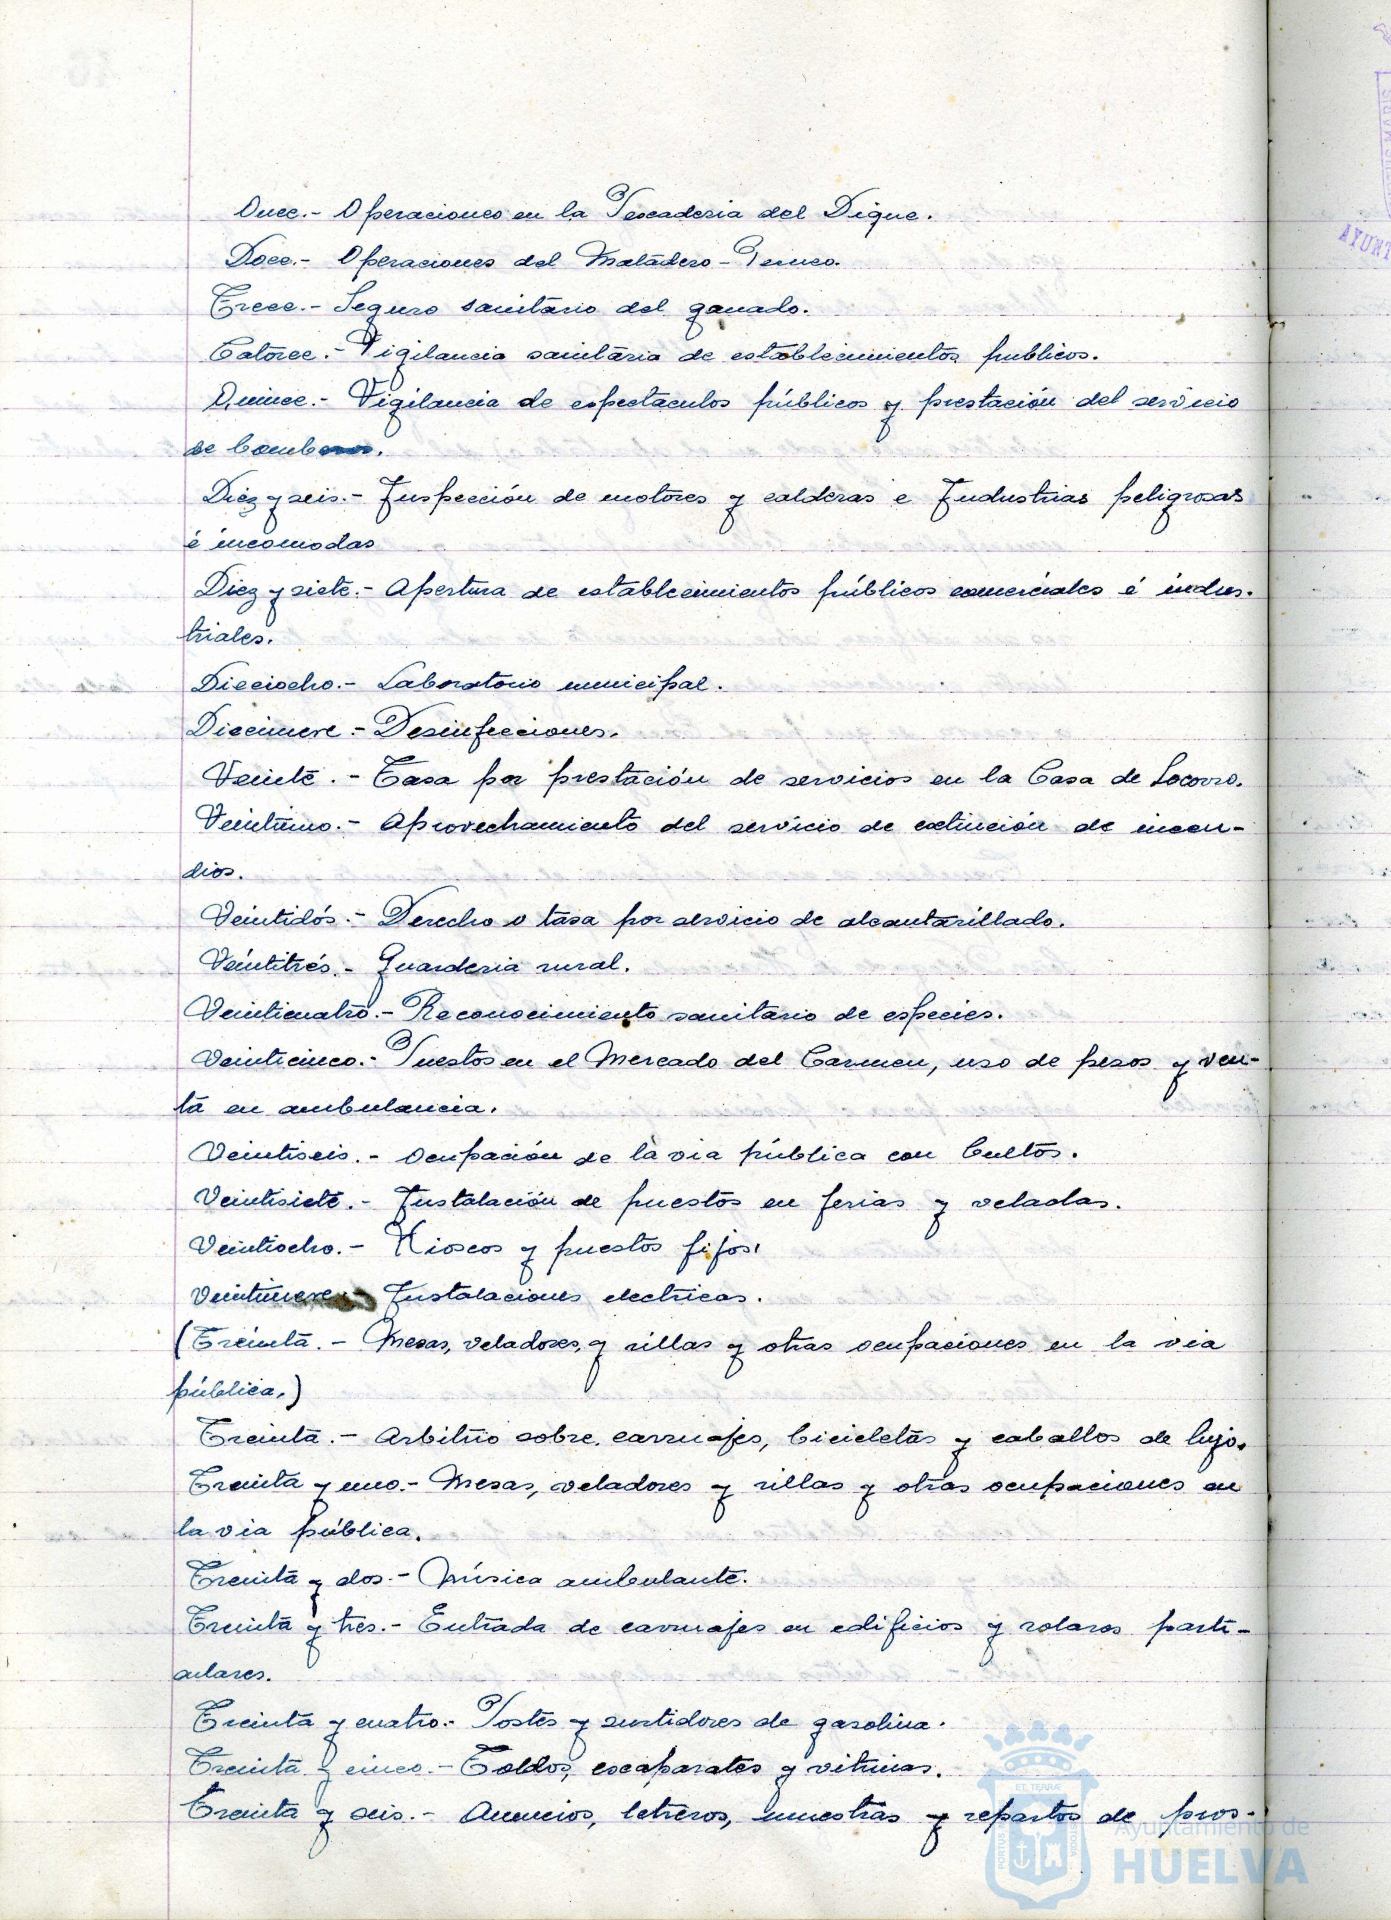 Once.- Operaciones en la Pescaderia del Dique.
Doce.- Operaciones del Matadero-
Trece.- Seguro sanitario del ganado.
Catorce.- Vigilancia sanitaria de establecimientos publicos.
Quince.- Vigilancia de espectaculos públicos y prestación del servicio
de bomberos.
Diez y seis.- Inspección de motores y calderas e Industrias peligrosas
é incomodas
Diez y siete.- Apertura de establecimientos públicos comerciales é indus-
triales.
Dieciocho.- Laboratorio municipal.
Diecinueve.- Desinfecciones.
Veinte.- Tasa por prestación de servicios en la Casa de Socorro.
Veintiuno.- Aprovechamiento del servicio de extinción de incen-
dios.
Veintidós.- Derecho o tasa por servicio de alcantarillado.
Veintitrés.- Guarderia rural.
Veinticuatro.- Reconocimiento sanitario de especies.
Veinticinco.- Puestos en el Mercado del Carmen, uso de pesos y ven-
ta en ambulancia.
Veintiseis.- Ocupación de la via pública con bultos.
Veintisiete.- Instalación de puestos en ferias y veladas.
Veintiocho.- Kioscos y puestos fijos.
Veintinueve.- Instalaciones electricas.
(Treinta.- Mesas, veladores, y sillas y otras ocupaciones en la via
pública.)
Treinta.- Arbitrio sobre carruajes, bicicletas y caballos de lujo.
Treinta y uno.- Mesas, veladores y sillas y otras ocupaciones en
la via pública.
Treinta y dos.- Música ambulante.
Treinta y tres.- Entrada de carruajes en edificios y solares parti-
culares.
Treinta y cuatro.- Postes y surtidores de gasolina.
Treinta y cinco.- Toldos, escaparates y vitrinas.
Treinta y seis.- Anuncios, letreros, muestras y repartos de pros-
AYUNT
ET TERRÆ
PORTUS
CUSTODIA
Ayuntamiento de
HUELVA